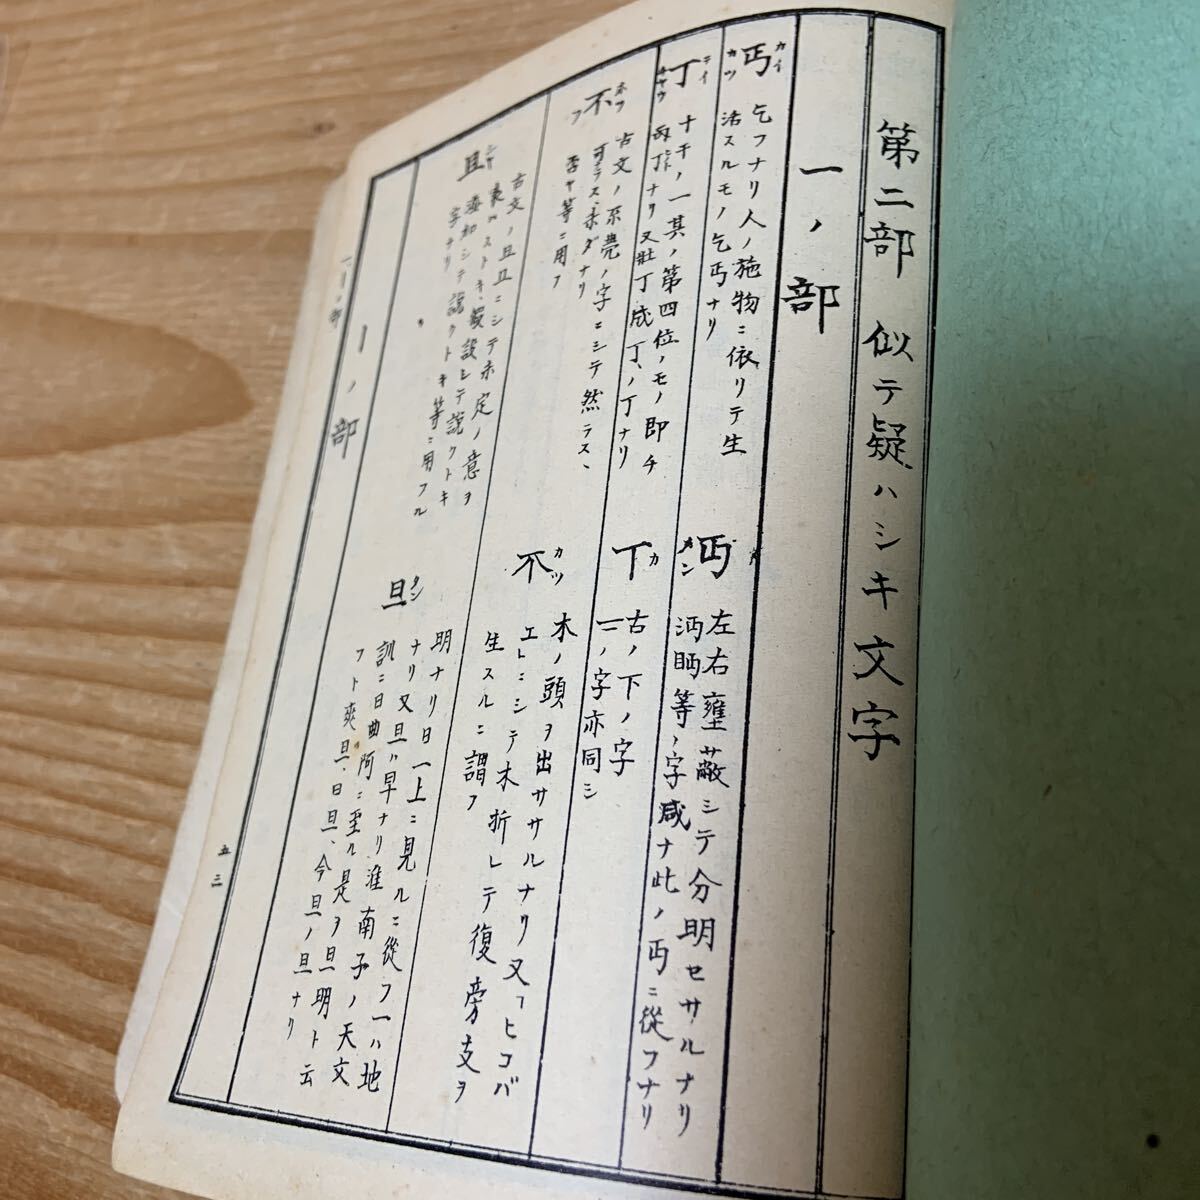 第二部 似テ疑ハシキ文字
一ノ部
丐 カイ カツ
乞フナリ人ノ施物ニ依リテ生
活スルモノ乞丐ナリ
丏 カン
左右壅蔽シテ分明セサルナリ
沔眄等ノ字咸ナ此ノ丏ニ從フナリ
丁 テイ
十干ノ一其ノ第四位ノモノ即チ
丙丁ナリ又壯丁成丁ノ丁ナリ
丅 カ
古ノ下ノ字
二ノ字亦同シ
不 ホツ フ
古文ノ字ニシテ然ラス、
可ラス、未ダナリ
否ヤ等ニ用フ
不 カツ
木ノ頭ヲ出ササルナリ又ヒコバ
エトニシテ木折レテ復旁支ヲ
生スルニ謂フ
且 シヤ
古文ノ且ニシテ未定ノ意ヲ
表ハストキ、假設シテ説クトキ
添加シテ説クトキ等ニ用フル
字ナリ
旦 タン
明ナリ日一上ニ見ルニ從フ一ハ地
ナリ又旦ハ早ナリ淮南子ノ天文
訓ニ日曲阿ニ至ル是ヲ旦明ト云
フト爽旦、日旦、今旦ノ旦ナリ
丨ノ部
一丨ノ部
五三